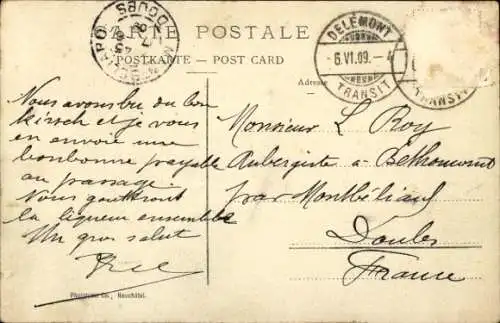 CARTE POSTALE
POSTKARTE — POST CARD
DOUBS
DELÉMONT
6.VI.09. — 4
TRANSIT
TRANSIT
Adresse
Nous avons bu du bon
kirsch et je vous
en envoie une
bonbonne payable
au passage.
Nous goutterons
la liqueur ensemble
Un gros salut
Monsieur L Roy
Aubergiste a Bethoncourt
par Montbéliard
Doubs
France
Neuchâtel.